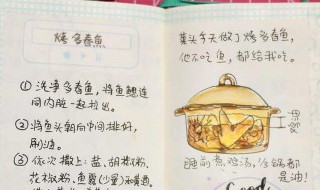 烤多春鱼
①洗净多春鱼,将鱼鳃连
同内脏一起拉出。
②将鱼头朝向中间排好,
刷油。
③依次撒上:盐、胡椒粉、
花椒粉、鱼露(少量)和黄酒
莫头今天做了烤多春鱼,
他不吃鱼,都给我吃。
睡前煮鸡汤,全锅都
是油!
Good